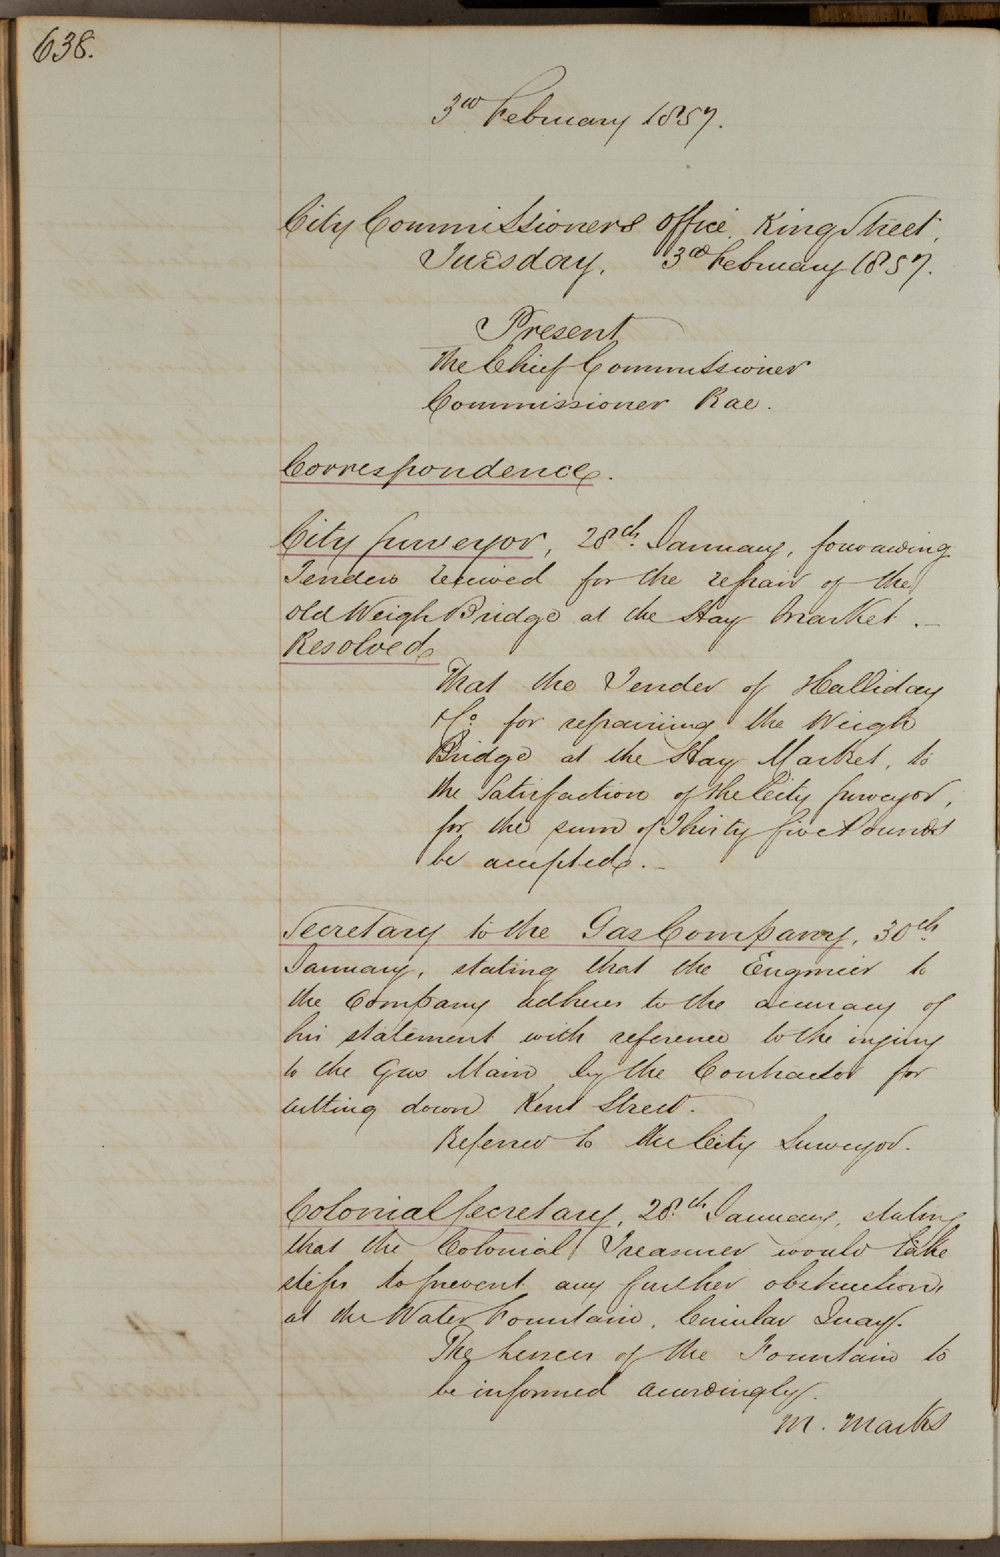 638.
3rd February 1857.
City Commissioners Office, King Street,
Tuesday, 3rd February 1857.
Present
The Chief Commissioner
Commissioner Rae.
Correspondence.
City Surveyor, 28th January, forwarding
Tenders received for the repair of the
old Weigh Bridge at the Hay Market.—
Resolved
That the Tender of Halliday
& Co for repairing the Weigh
Bridge at the Hay Market, to
the Satisfaction of the City Surveyor,
for the sum of Thirty five Pounds
be accepted.—
Secretary to the Gas Company, 30th
January, stating that the Engineer to
the Company adheres to the accuracy of
his statement with reference to the injury
to the Gas Main, by the Contractor for
cutting down Kent Street.
Referred to the City Surveyor.
Colonial Secretary, 28th January, stating
that the Colonial Treasurer would take
steps to prevent any further obstruction,
at the Water Fountain, Circular Quay.
The Lessees of the Fountain to
be informed accordingly.
M. Marks